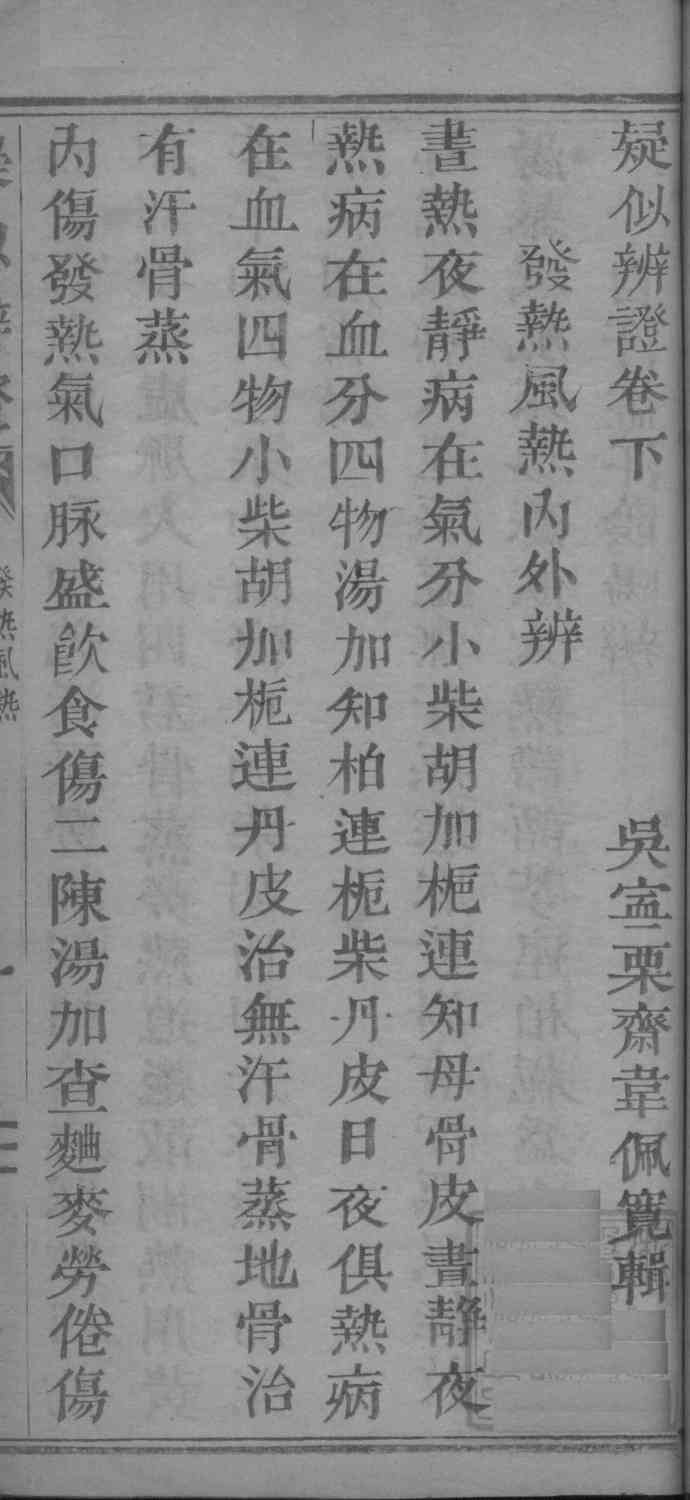 疑似辨證卷下
吳寍栗齋韋佩寬輯
發熱風熱內外辨
晝熱夜靜病在氣分小柴胡加梔連知母骨皮晝靜夜
熱病在血分四物湯加知柏連梔柴丹皮日夜俱熱病
在血氣四物小柴胡加梔連丹皮治無汗骨蒸地骨治
有汗骨蒸
內傷發熱氣口脉盛飲食傷二陳湯加查麯麥勞倦傷
發熱風熱